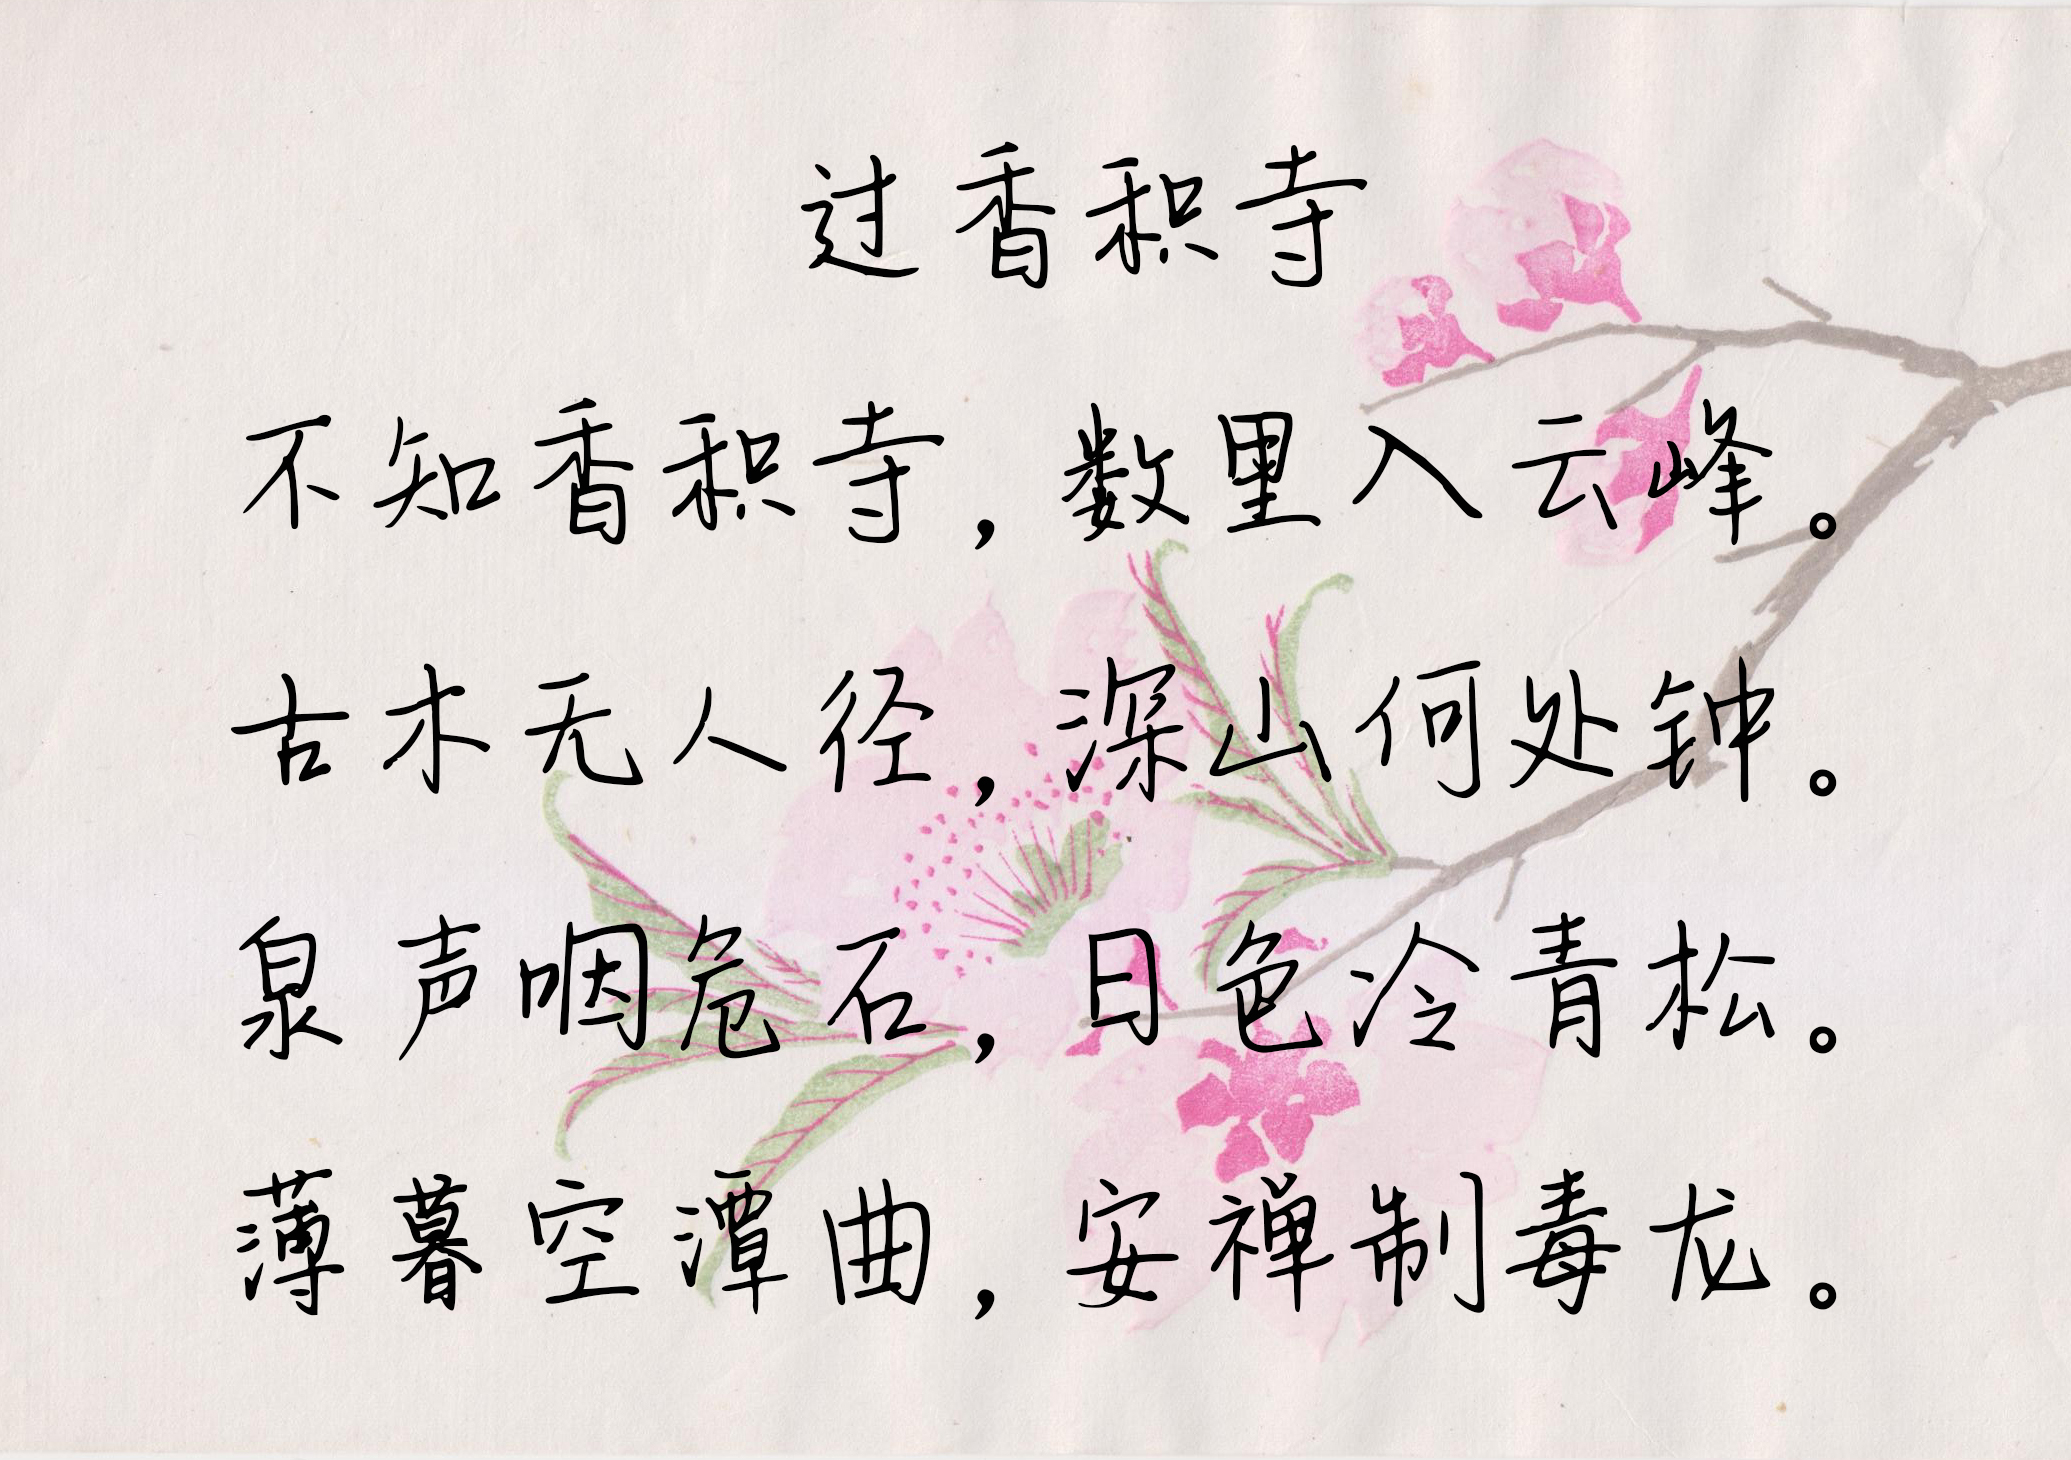 过香积寺
不知香积寺，数里入云峰。
古木无人径，深山何处钟。
泉声咽危石，日色冷青松。
薄暮空潭曲，安禅制毒龙。